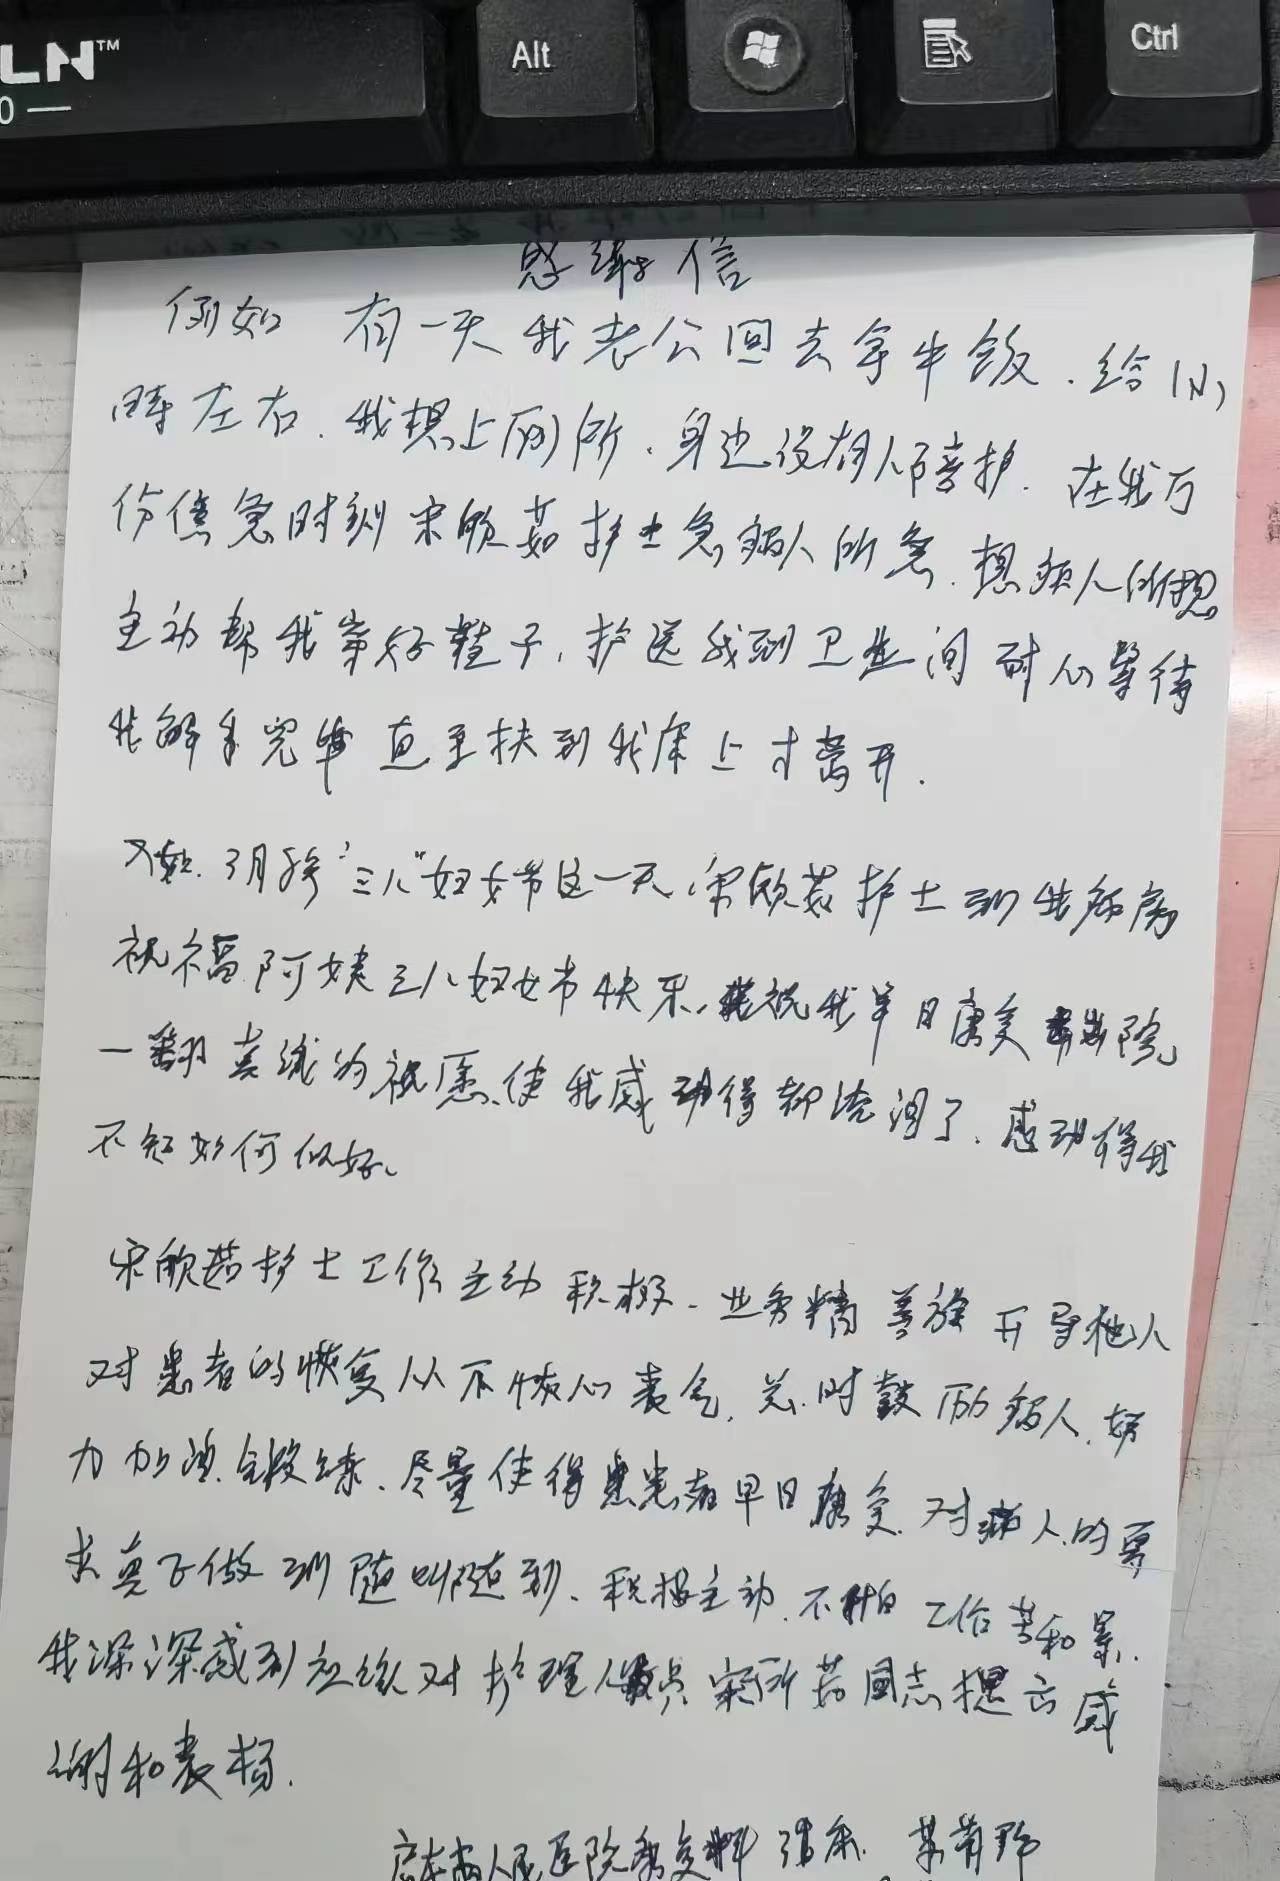 LN™
0 —
Alt
Ctrl
感谢信
例如 有一天我老公回去拿午饭.给1小
时左右.我想上厕所.身边没有人陪护.在我万
份焦急时刻宋欣茹护士急病人所急.想病人所想
主动帮我穿好鞋子,护送我到卫生间耐心等待
我解手完毕直至扶到我床上才离开.
又如.3月8号"三八"妇女节这一天,宋欣茹护士到我病房
祝福阿姨三八妇女节快乐,并祝我早日康复出院
一翻真诚的祝愿、使我感动得都流泪了.感动得我
不知如何似好、
宋欣茹护士工作主动积极.业务精 善于 开导他人
对患者的恢复从不恢心丧气,总时鼓励病人.努
力加强锻练.尽量使得患者早日康复.对病人的要
求真正做到随叫随到、积极主动.不怕工作苦和累.
我深深感到应该对护理人员宋所茹同志提出感
谢和表扬.
人民医院康复科